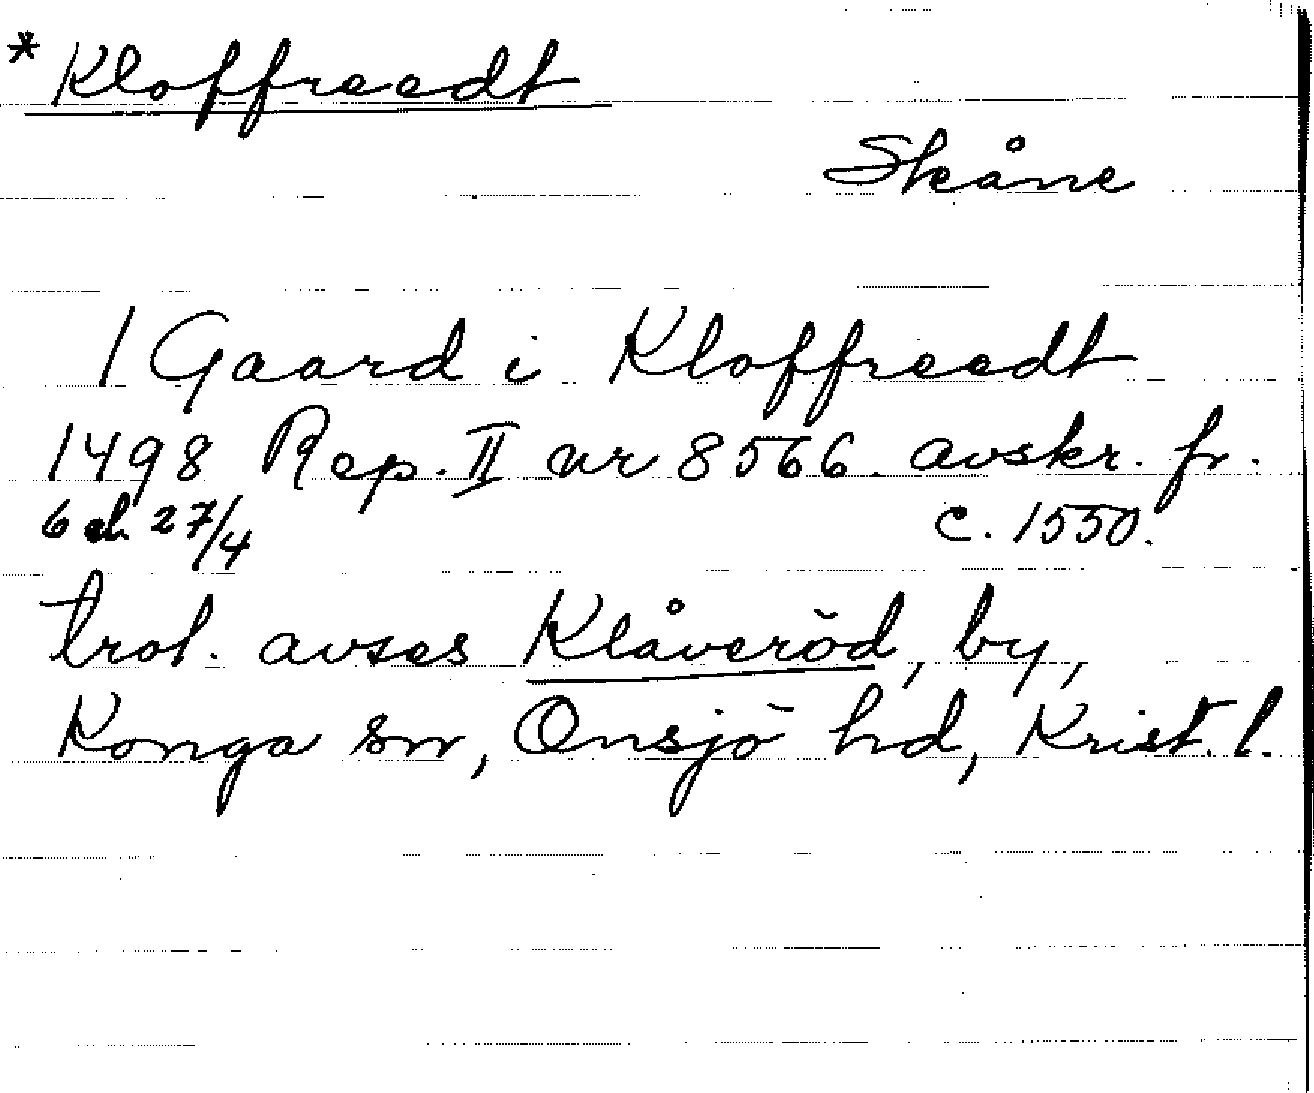 * Kloffreedt
Skåne
1 Gaard i Kloffreedt
1498 Rep. II nr 8566. avskr. fr.
6 el. 27/4 c. 1550.
trol. avses Klåveröd, by,
Konga sn, Onsjö hd, Krist. l.